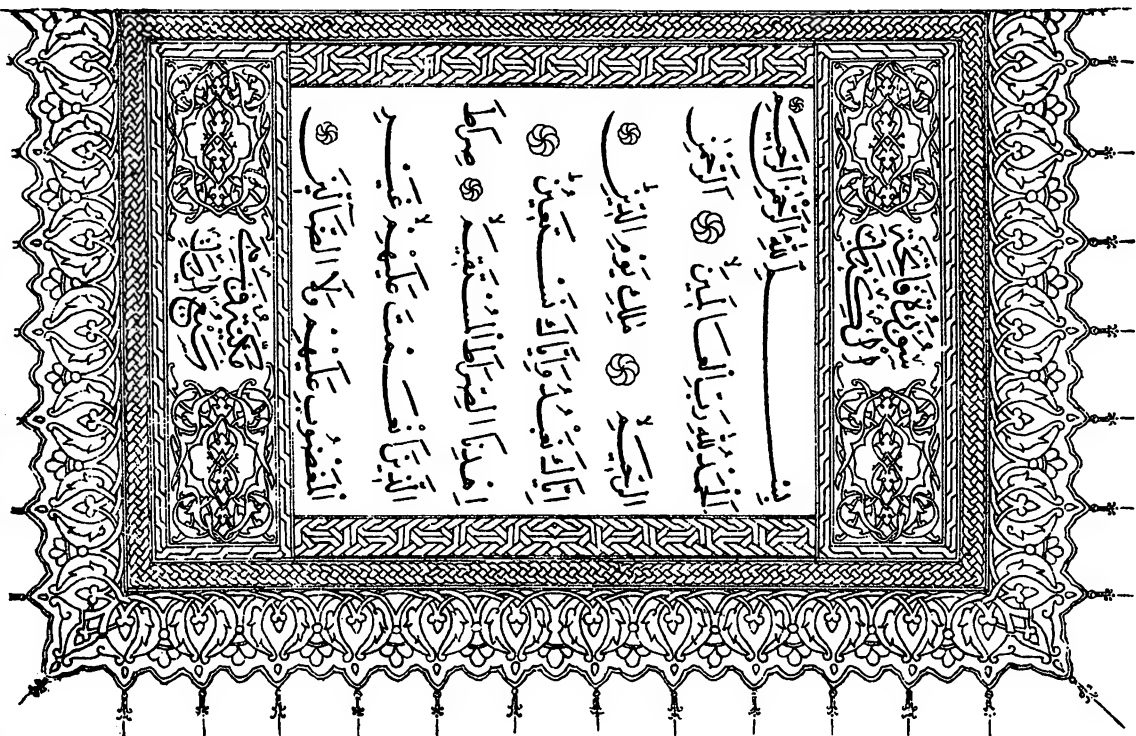 سُورَةُ فَاتِحَةِ
الْكِتَابِ
بِسْمِ اللَّهِ الرَّحْمَنِ الرَّحِيمِ
الْحَمْدُ لِلَّهِ رَبِّ الْعَالَمِينَ الرَّحْمَنِ
الرَّحِيمِ مَالِكِ يَوْمِ الدِّينِ
إِيَّاكَ نَعْبُدُ وَإِيَّاكَ نَسْتَعِينُ
اهْدِنَا الصِّرَاطَ الْمُسْتَقِيمَ صِرَاطَ
الَّذِينَ أَنْعَمْتَ عَلَيْهِمْ غَيْرِ
الْمَغْضُوبِ عَلَيْهِمْ وَلَا الضَّالِّينَ